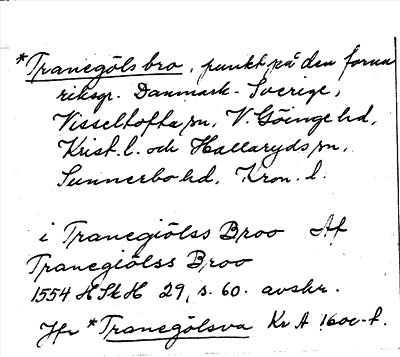 *Tranegöls bro, punkt på den forna
riksgr. Danmark-Sverige,
Visseltofta sn, V. Göinge hd,
Krist. l. och Hallaryds sn,
Sunnerbo hd, Kron. l.
i Tranegiölss Broo Af
Tranegiölss Broo
1554 HSkH 29, s. 60. avskr.
Jfr *Tranegölsva Kr A 1600-t.